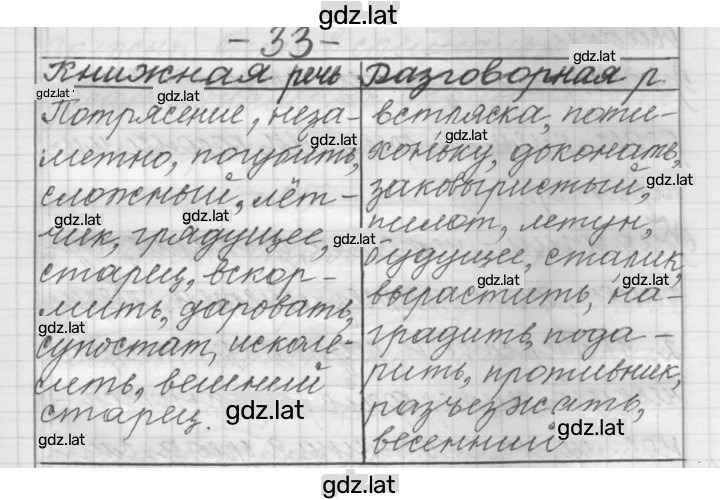 gdz.lat
- 33 -
gdz.lat
Книжная речь
Разговорная р.
gdz.lat
gdz.lat
Потрясение, неза-
метно, погубить,
сложный, лёт-
чик, грядущее,
старец, вскор-
мить, даровать,
супостат, исколе-
сить, вешний
старец.
встряска, поти-
хоньку, доконать,
заковыристый,
пилот, летун,
будущее, старик,
вырастить, на-
градить, пода-
рить, противник,
разъезжать,
весенний
gdz.lat
gdz.lat
gdz.lat
gdz.lat
gdz.lat
gdz.lat
gdz.lat
gdz.lat
gdz.lat
gdz.lat
gdz.lat
gdz.lat
gdz.lat